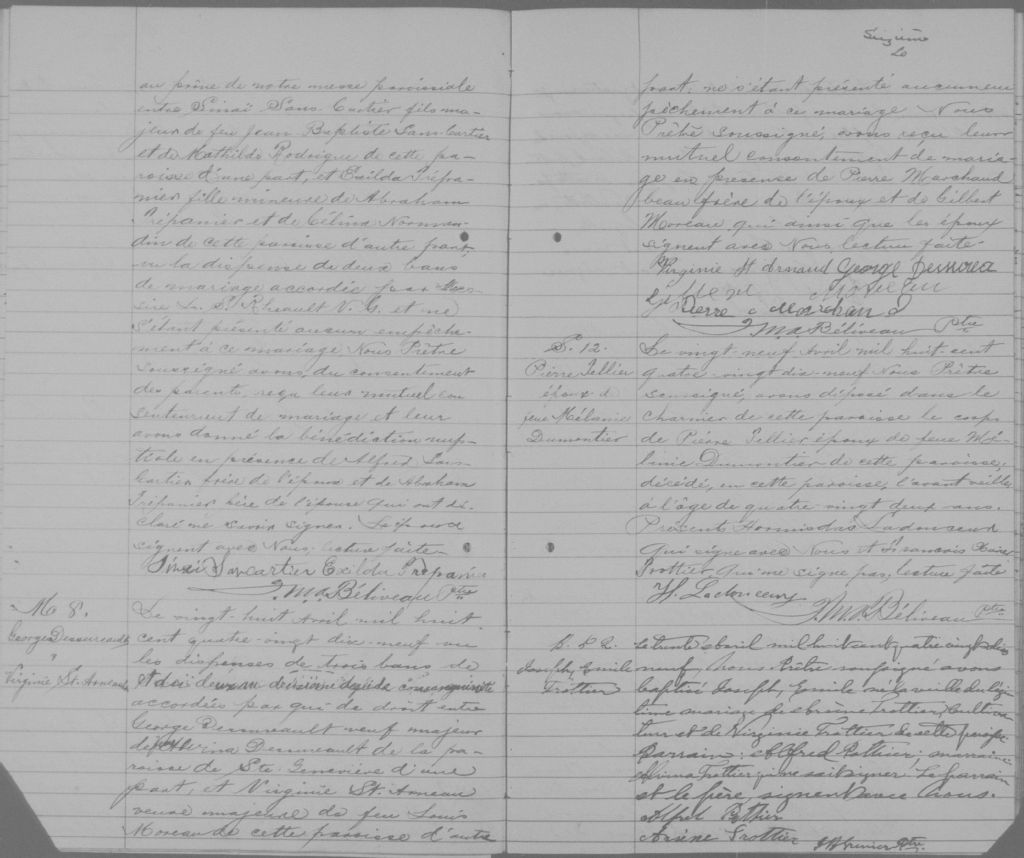 au prône de notre messe paroissiale
entre Sinaï Sans-Cartier fils ma-
jeur de feu Jean Baptiste Sans-Cartier
et de Mathilde Rodrigue de cette pa-
roisse d'une part, et Exilda Trépa-
nier fille mineure de Abraham
Trépanier et de Célina Norman-
din de cette paroisse d'autre part,
vu la dispense de deux bans
de mariage accordée par Mes-
sire L. S. Rheault V. G. et ne
s'étant présenté aucun empêche-
ment à ce mariage Nous Prêtre
soussigné avons, du consentement
des parents, reçu leur mutuel con
sentement de mariage et leur
avons donné la bénédiction nup-
tiale en présence de Alfred Sans
Cartier frère de l'époux et de Abraham
Trépanier père de l'épouse qui ont dé-
claré ne savoir signer. Les époux
signent avec Nous, lecture faite
Sinaï Sancartier Exilda Trépanié
J. M. A. Béliveau Ptre
M 8.
Georges Dessureault
&
Virginie St. Arneault
Le vingt huit Avril mil huit
cent quatre-vingt dix-neuf vu
les dispenses de trois bans de
et du deux au deuxième degré de consanguinité
accordées par qui de droit entre
George Dessureault veuf majeur
de Dessureault de la pa-
roisse de Ste Geneviève d'une
part, et Virginie St. Arneau
veuve majeure de feu Louis
Moreau de cette paroisse d'autre
Seizième
Le
part; ne s'étant présenté aucun em
pêchement à ce mariage Nous
Prêtre soussigné, avons reçu leur
mutuel consentement de maria-
ge en présence de Pierre Marchand
beau frère de l'époux et de Gilbert
Moreau qui ainsi que les époux
signent avec Nous lecture faite
Virginie St Arnaud George Desurea
Pierre Marchand
J. M. A. Béliveau Ptre
S. 12.
Pierre Tellier
époux de
feue Mélanie
Dumontier
Le vingt-neuf Avril mil huit-cent
quatre-vingt dix-neuf Nous Prêtre
soussigné, avons déposé dans le
charnier de cette paroisse le corps
de Pierre Tellier époux de feue Mé-
lanie Dumontier de cette paroisse,
décédé, en cette paroisse, l'avant veille
à l'âge de quatre-vingt deux ans.
Présents Hormisdas Ladouceur
qui signe avec Nous et François Xavier
Trottier qui ne signe pas, lecture faite
H. Ladouceur
J. M. A. Béliveau Ptre
Joseph, Emile
Trottier
Le trente abril mil huit cent quatre vingt dix
neuf, Nous Prêtre soussigné avons
baptisé Joseph, Emile né la veille du légi-
time mariage de Arsène Trottier, Cultiva-
teur et de Virginie Trottier de cette paroisse.
Parrain: Alfred Pothier; marraine
Trottier qui ne sait signer. Le parrain
et le père, signent avec nous.
Alfred Pothier
Arsène Trottier
Ptre